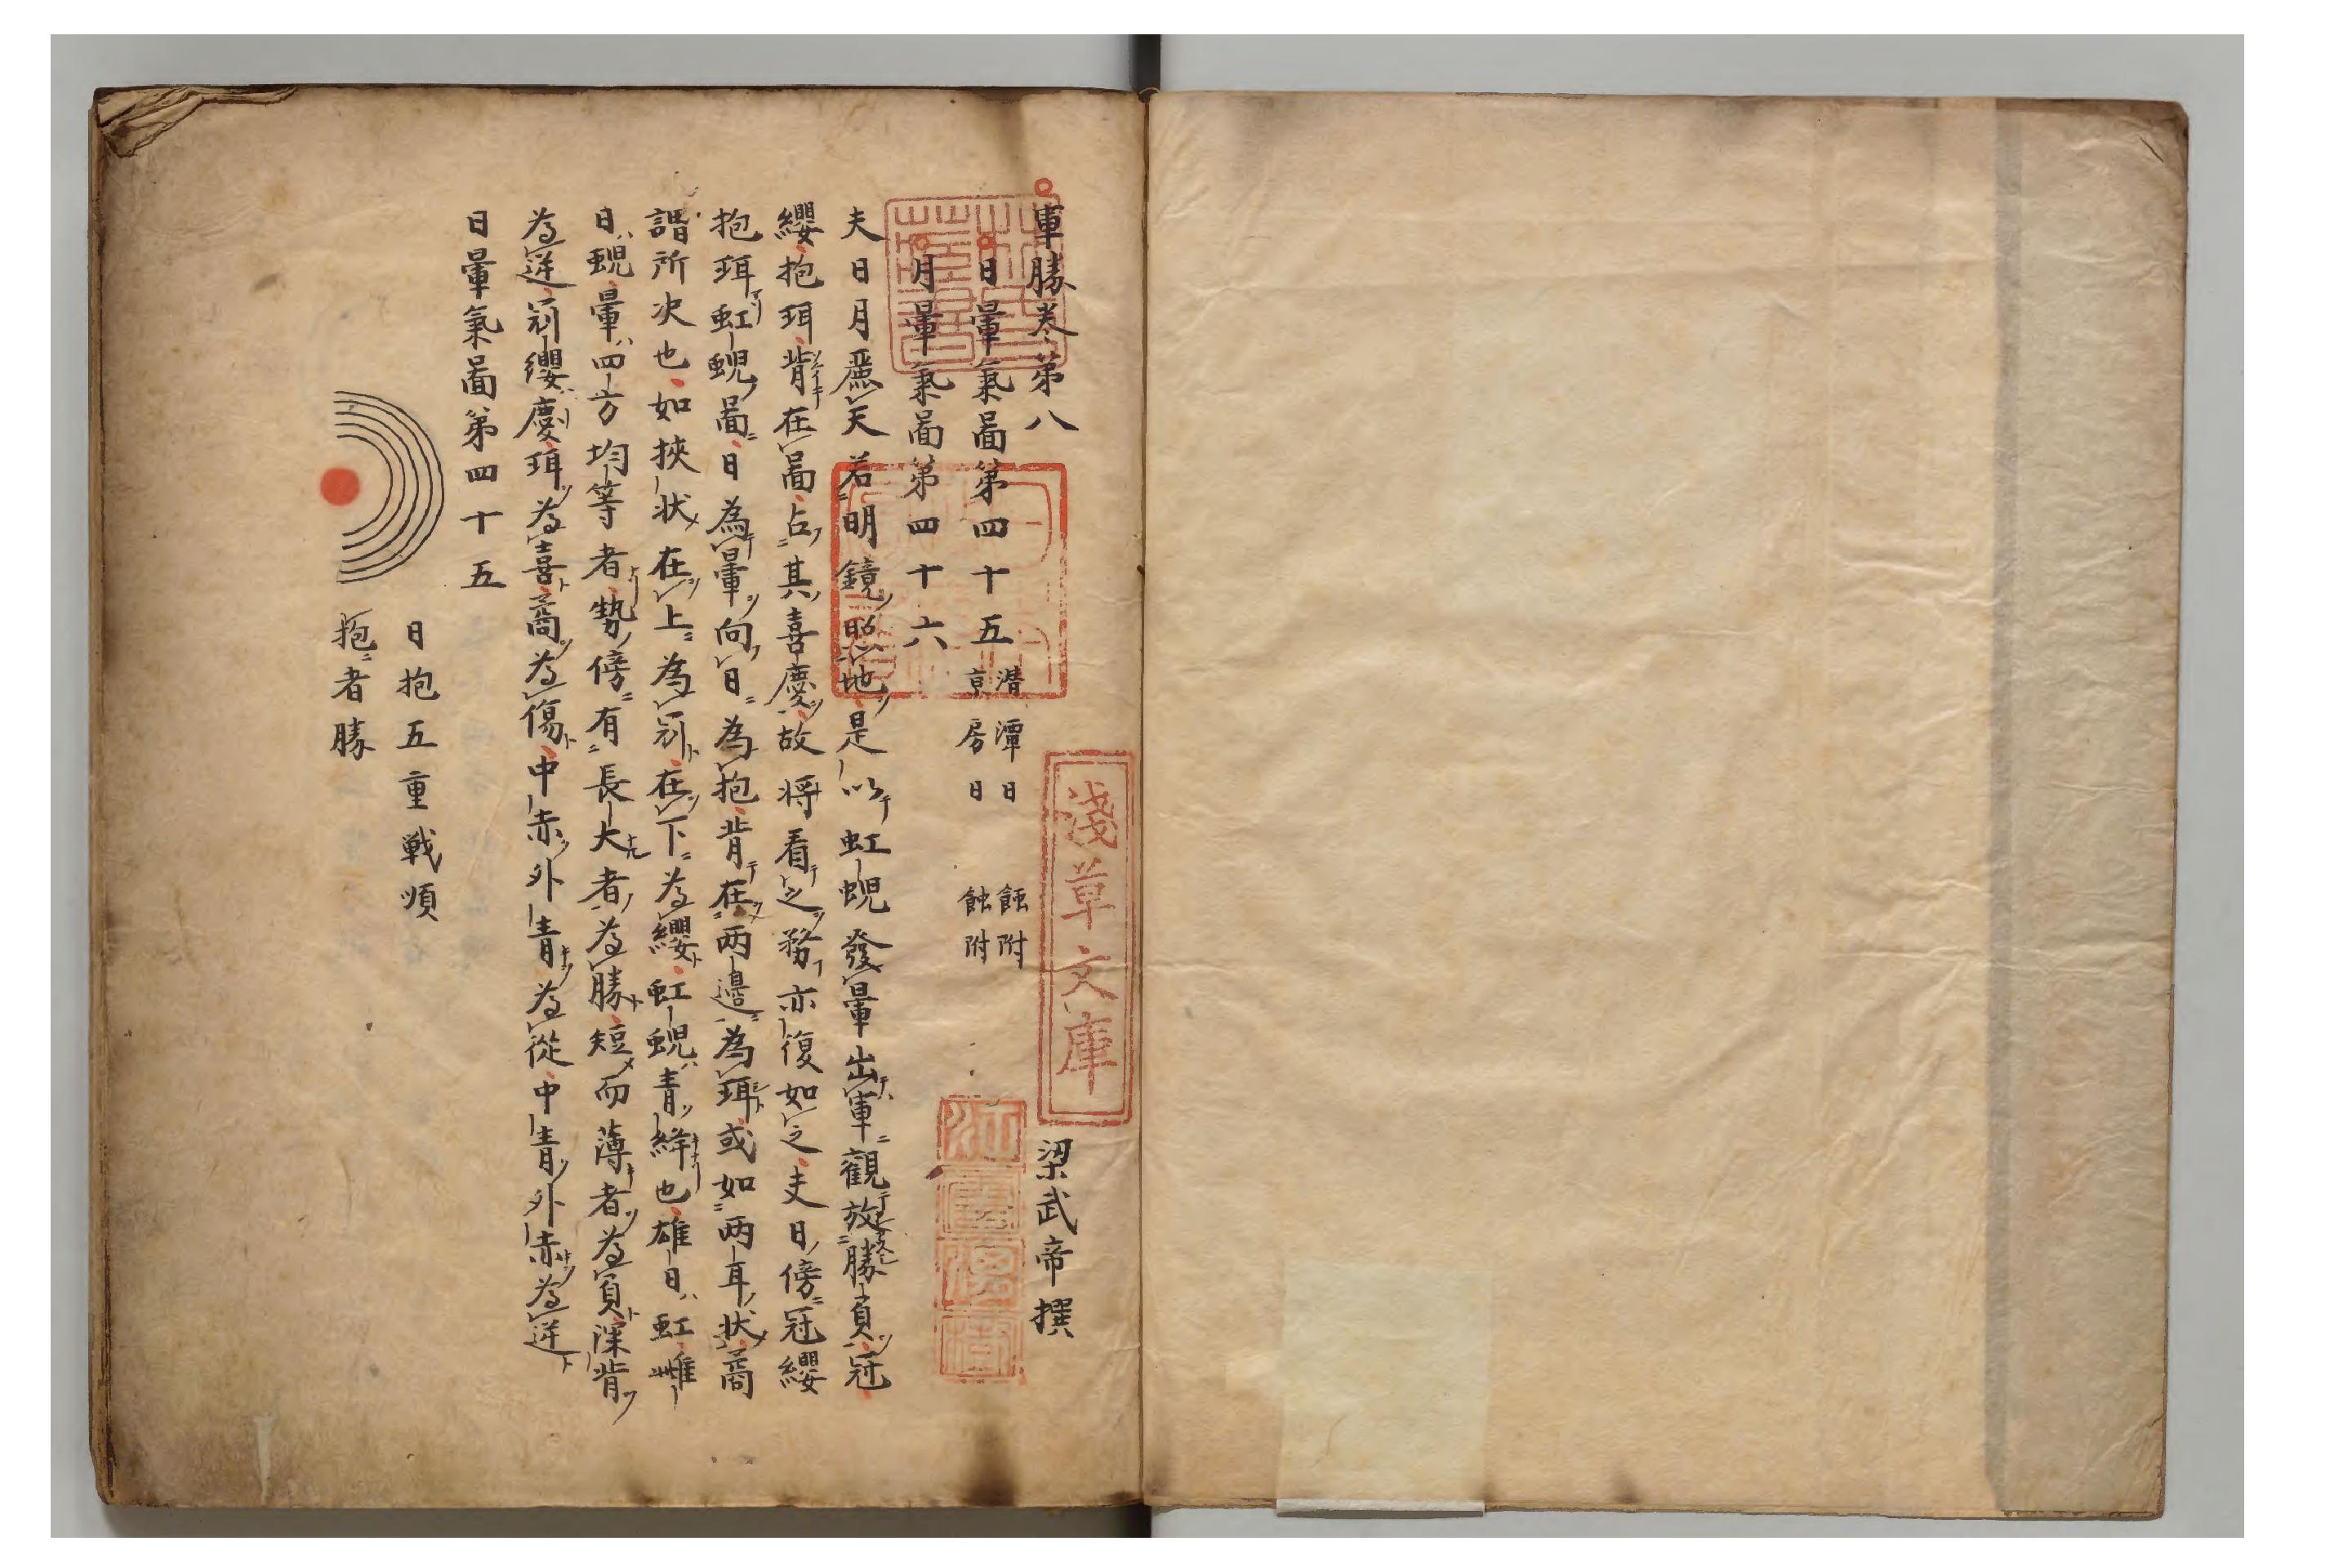 軍勝卷第八
梁武帝撰
日暈氣啚第四十五
潛潭日 蝕附
亰房日 蝕附
月暈氣啚第四十六
夫日月麗天若明鏡照地是以虹蜺發暈出軍觀放勝負冠
纓抱珥背在啚占其喜慶故将看之務亦復如之夫日傍冠纓
抱珥虹蜺啚日為暈向日為抱背在两邊為珥或如两耳状
謂所次也如挾状在上為冠在下為纓虹蜺青絳也雄日虹雌
日蜺暈四方均等者勢傍有長大者為勝短而薄者為負深背
為逆冠纓慶珥為喜為傷中赤外青為從中青外赤為逆
日暈氣啚第四十五
日抱五重戦順
抱者勝
淺草文庫